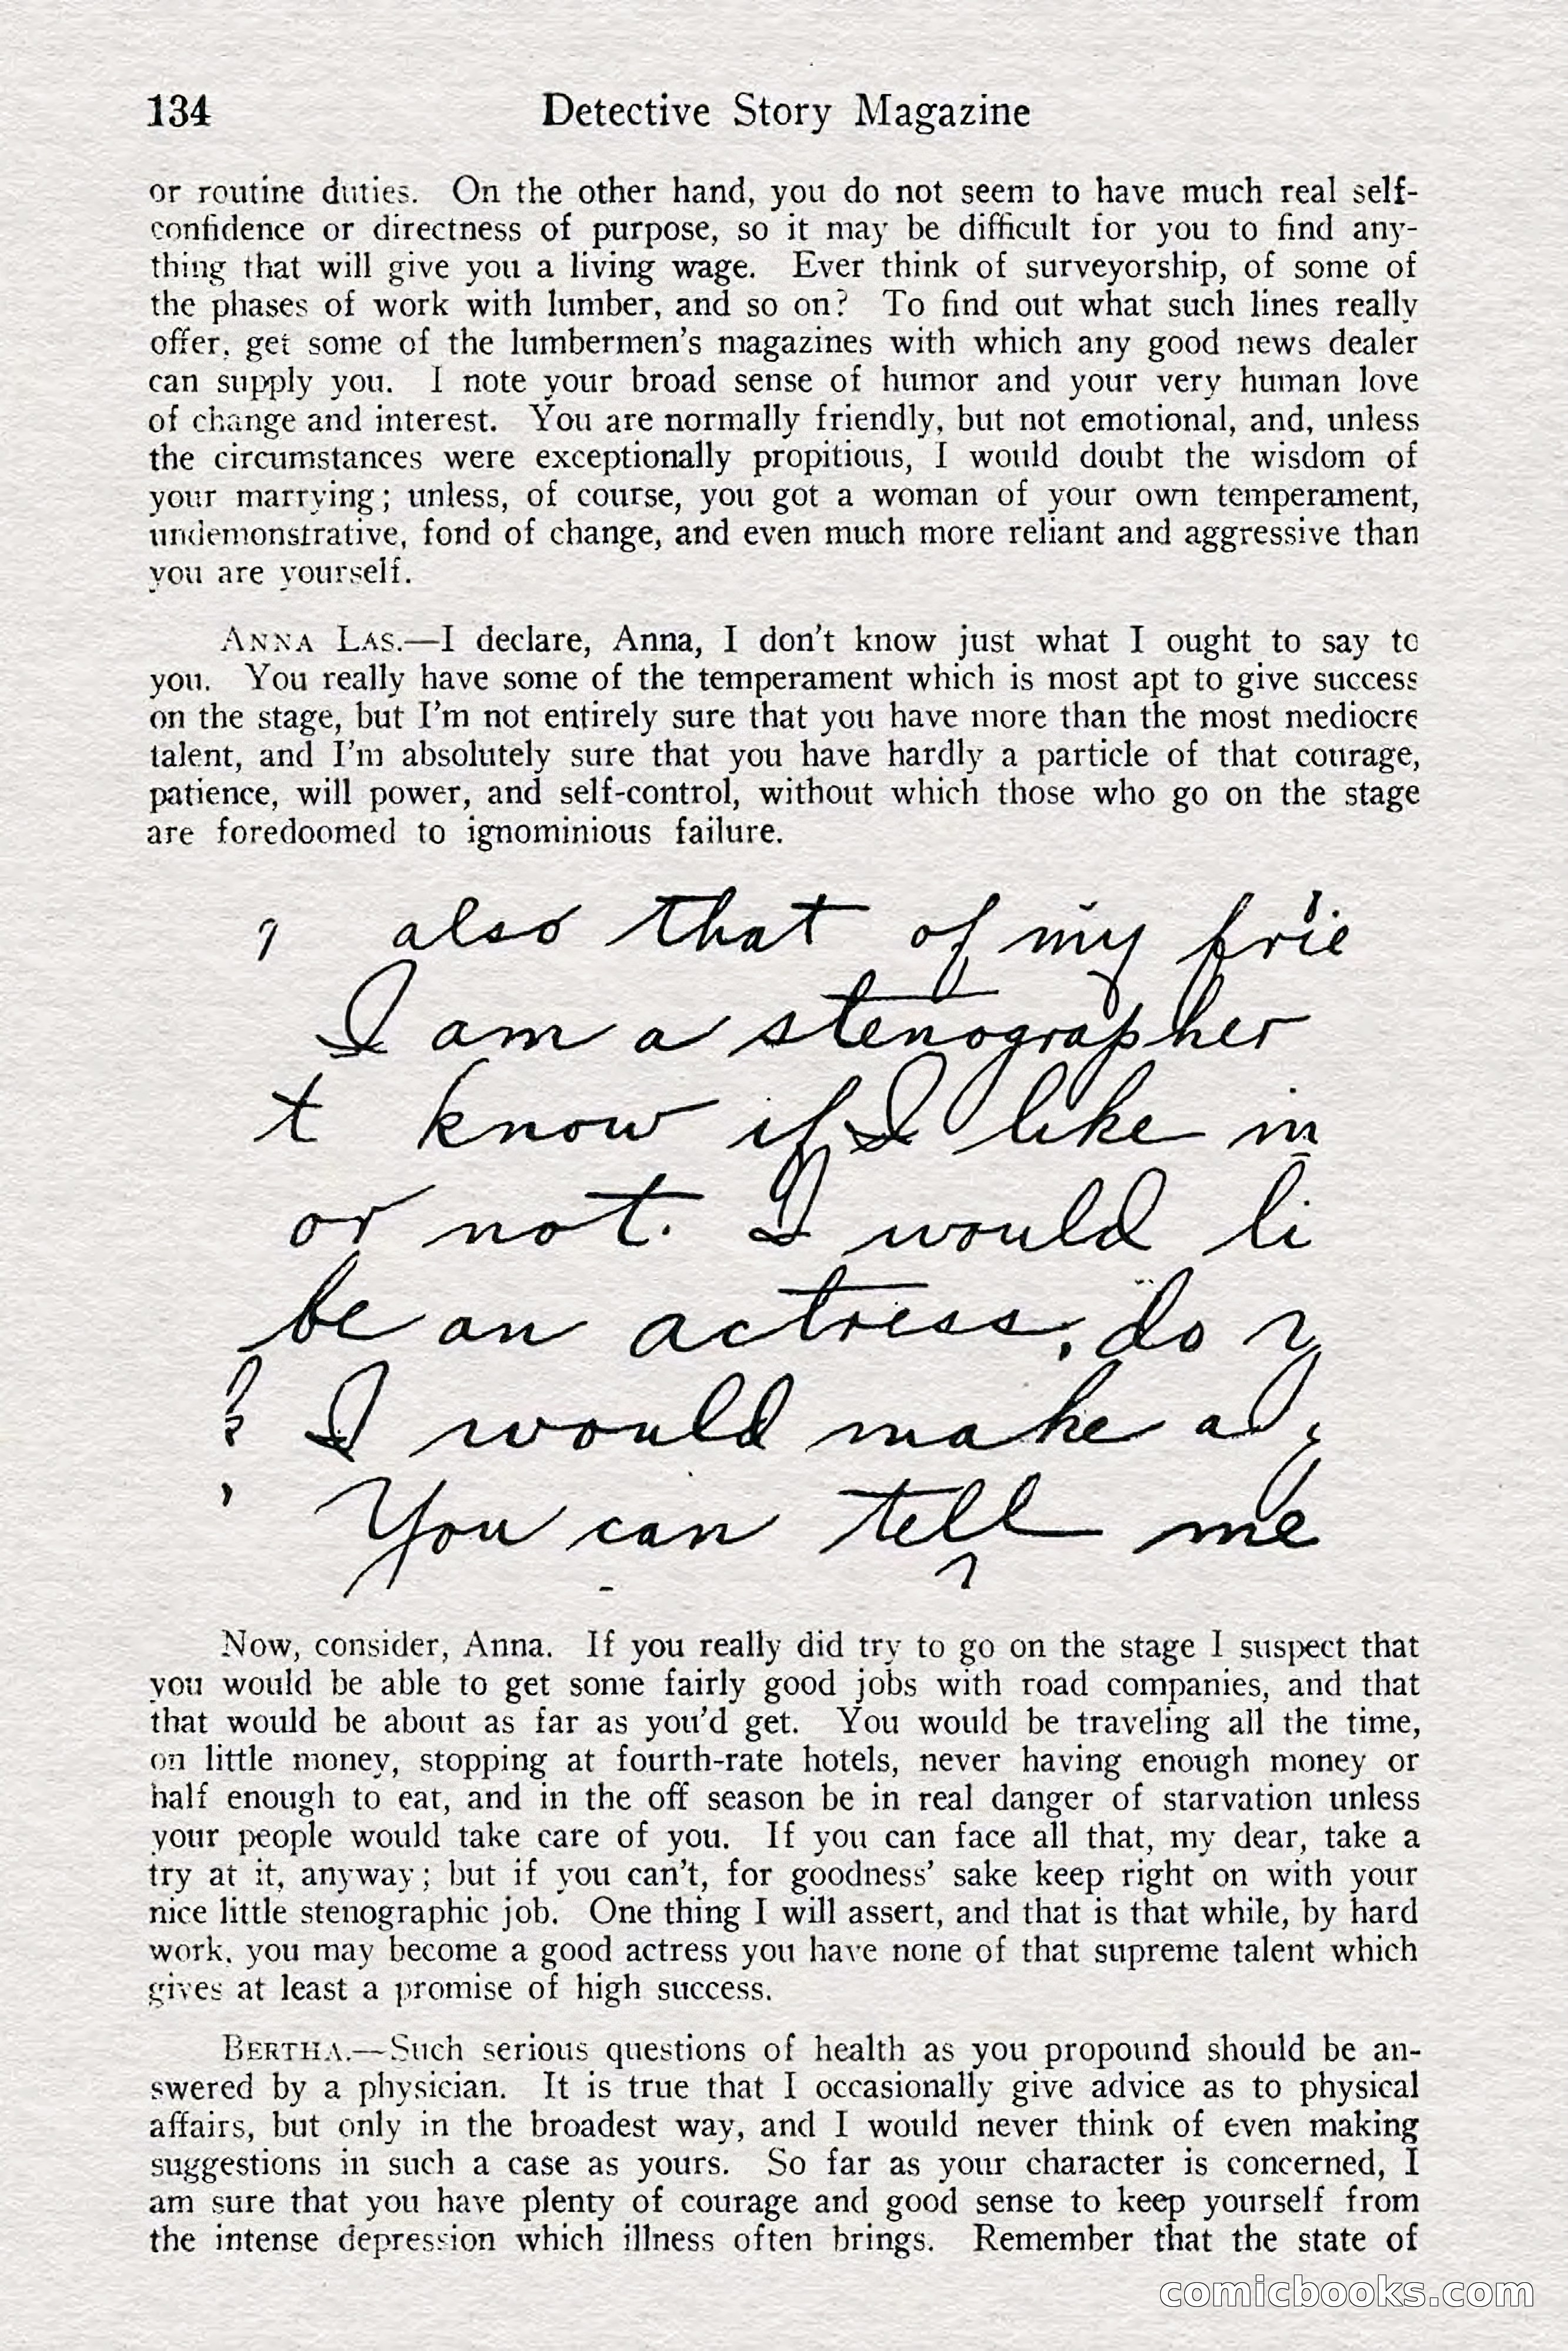 134 Detective Story Magazine
or routine duties. On the other hand, you do not seem to have much real self-
confidence or directness of purpose, so it may be difficult for you to find any-
thing that will give you a living wage. Ever think of surveyorship, of some of
the phases of work with lumber, and so on? To find out what such lines really
offer, get some of the lumbermen's magazines with which any good news dealer
can supply you. I note your broad sense of humor and your very human love
of change and interest. You are normally friendly, but not emotional, and, unless
the circumstances were exceptionally propitious, I would doubt the wisdom of
your marrying; unless, of course, you got a woman of your own temperament,
undemonstrative, fond of change, and even much more reliant and aggressive than
you are yourself.
ANNA LAS.—I declare, Anna, I don't know just what I ought to say to
you. You really have some of the temperament which is most apt to give success
on the stage, but I'm not entirely sure that you have more than the most mediocre
talent, and I'm absolutely sure that you have hardly a particle of that courage,
patience, will power, and self-control, without which those who go on the stage
are foredoomed to ignominious failure.
also that of my frie
I am a stenographer
t know if I like in
or not. I would li
be an actress, do y
I would make a
You can tell me
Now, consider, Anna. If you really did try to go on the stage I suspect that
you would be able to get some fairly good jobs with road companies, and that
that would be about as far as you'd get. You would be traveling all the time,
on little money, stopping at fourth-rate hotels, never having enough money or
half enough to eat, and in the off season be in real danger of starvation unless
your people would take care of you. If you can face all that, my dear, take a
try at it, anyway; but if you can't, for goodness' sake keep right on with your
nice little stenographic job. One thing I will assert, and that is that while, by hard
work, you may become a good actress you have none of that supreme talent which
gives at least a promise of high success.
BERTHA.—Such serious questions of health as you propound should be an-
swered by a physician. It is true that I occasionally give advice as to physical
affairs, but only in the broadest way, and I would never think of even making
suggestions in such a case as yours. So far as your character is concerned, I
am sure that you have plenty of courage and good sense to keep yourself from
the intense depression which illness often brings. Remember that the state of
comicbooks.com